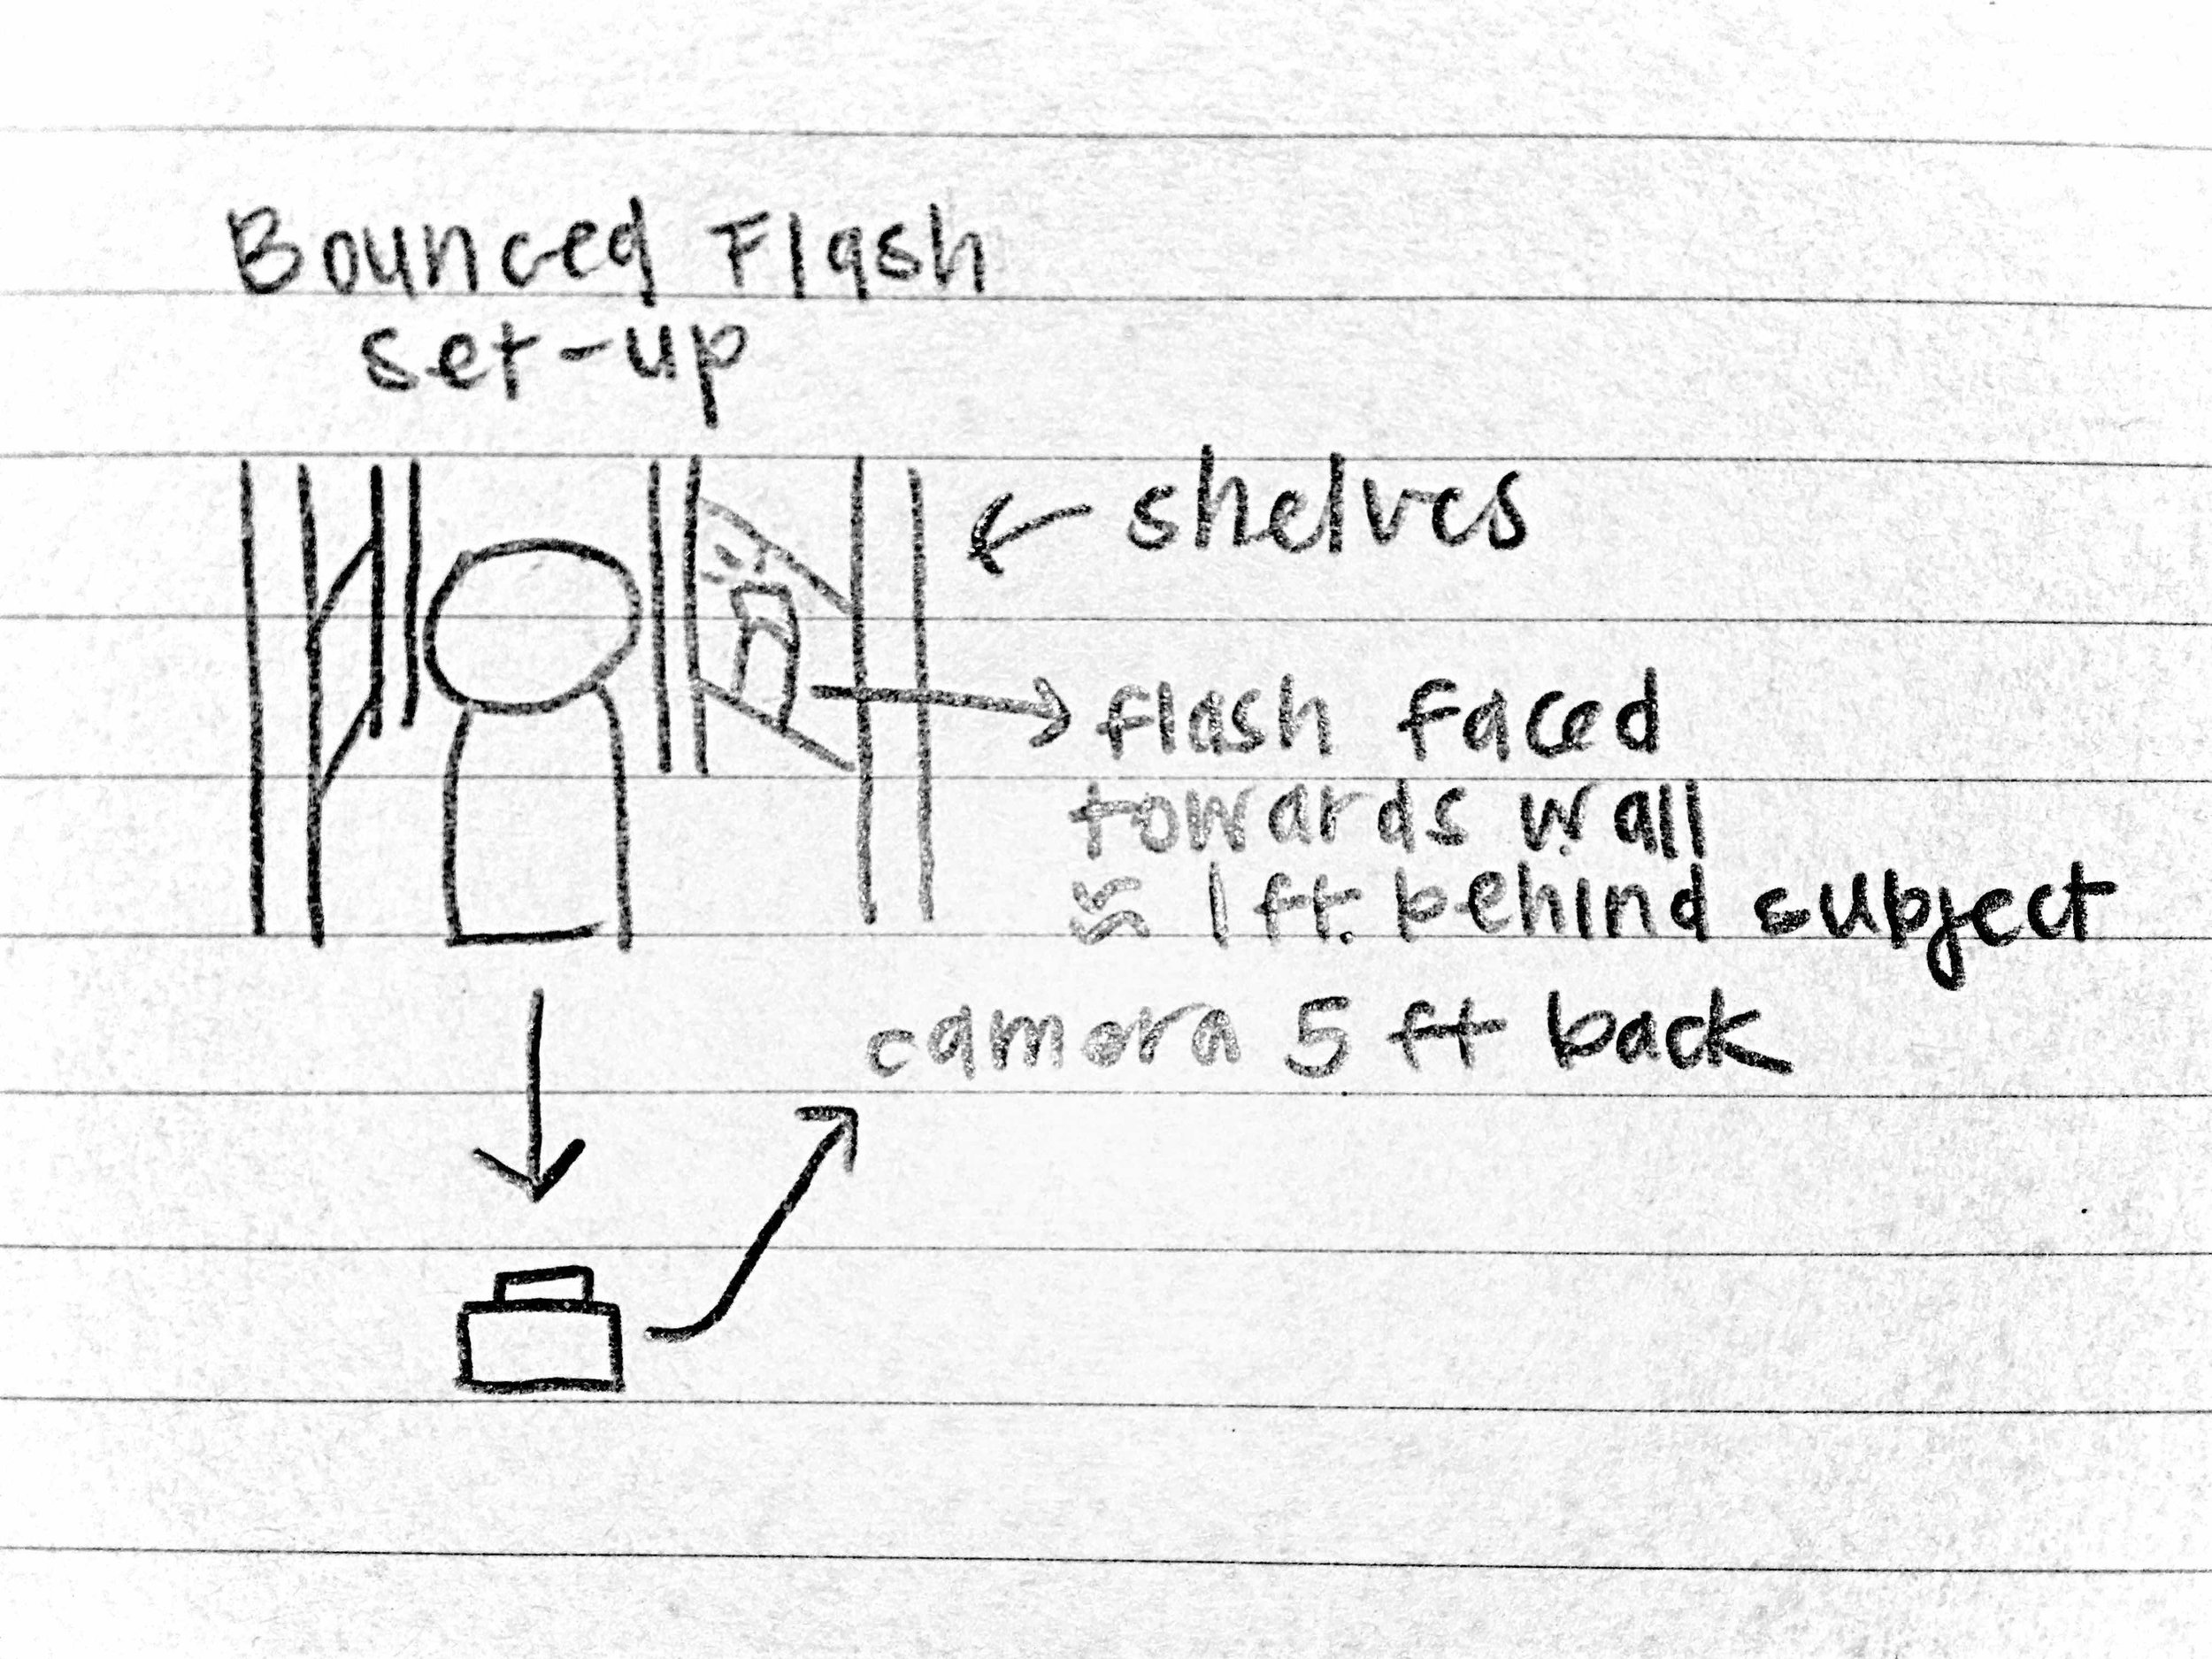 Bounced Flash
set-up
← shelves
flash faced
towards wall
≈ 1 ft. behind subject
camera 5 ft back